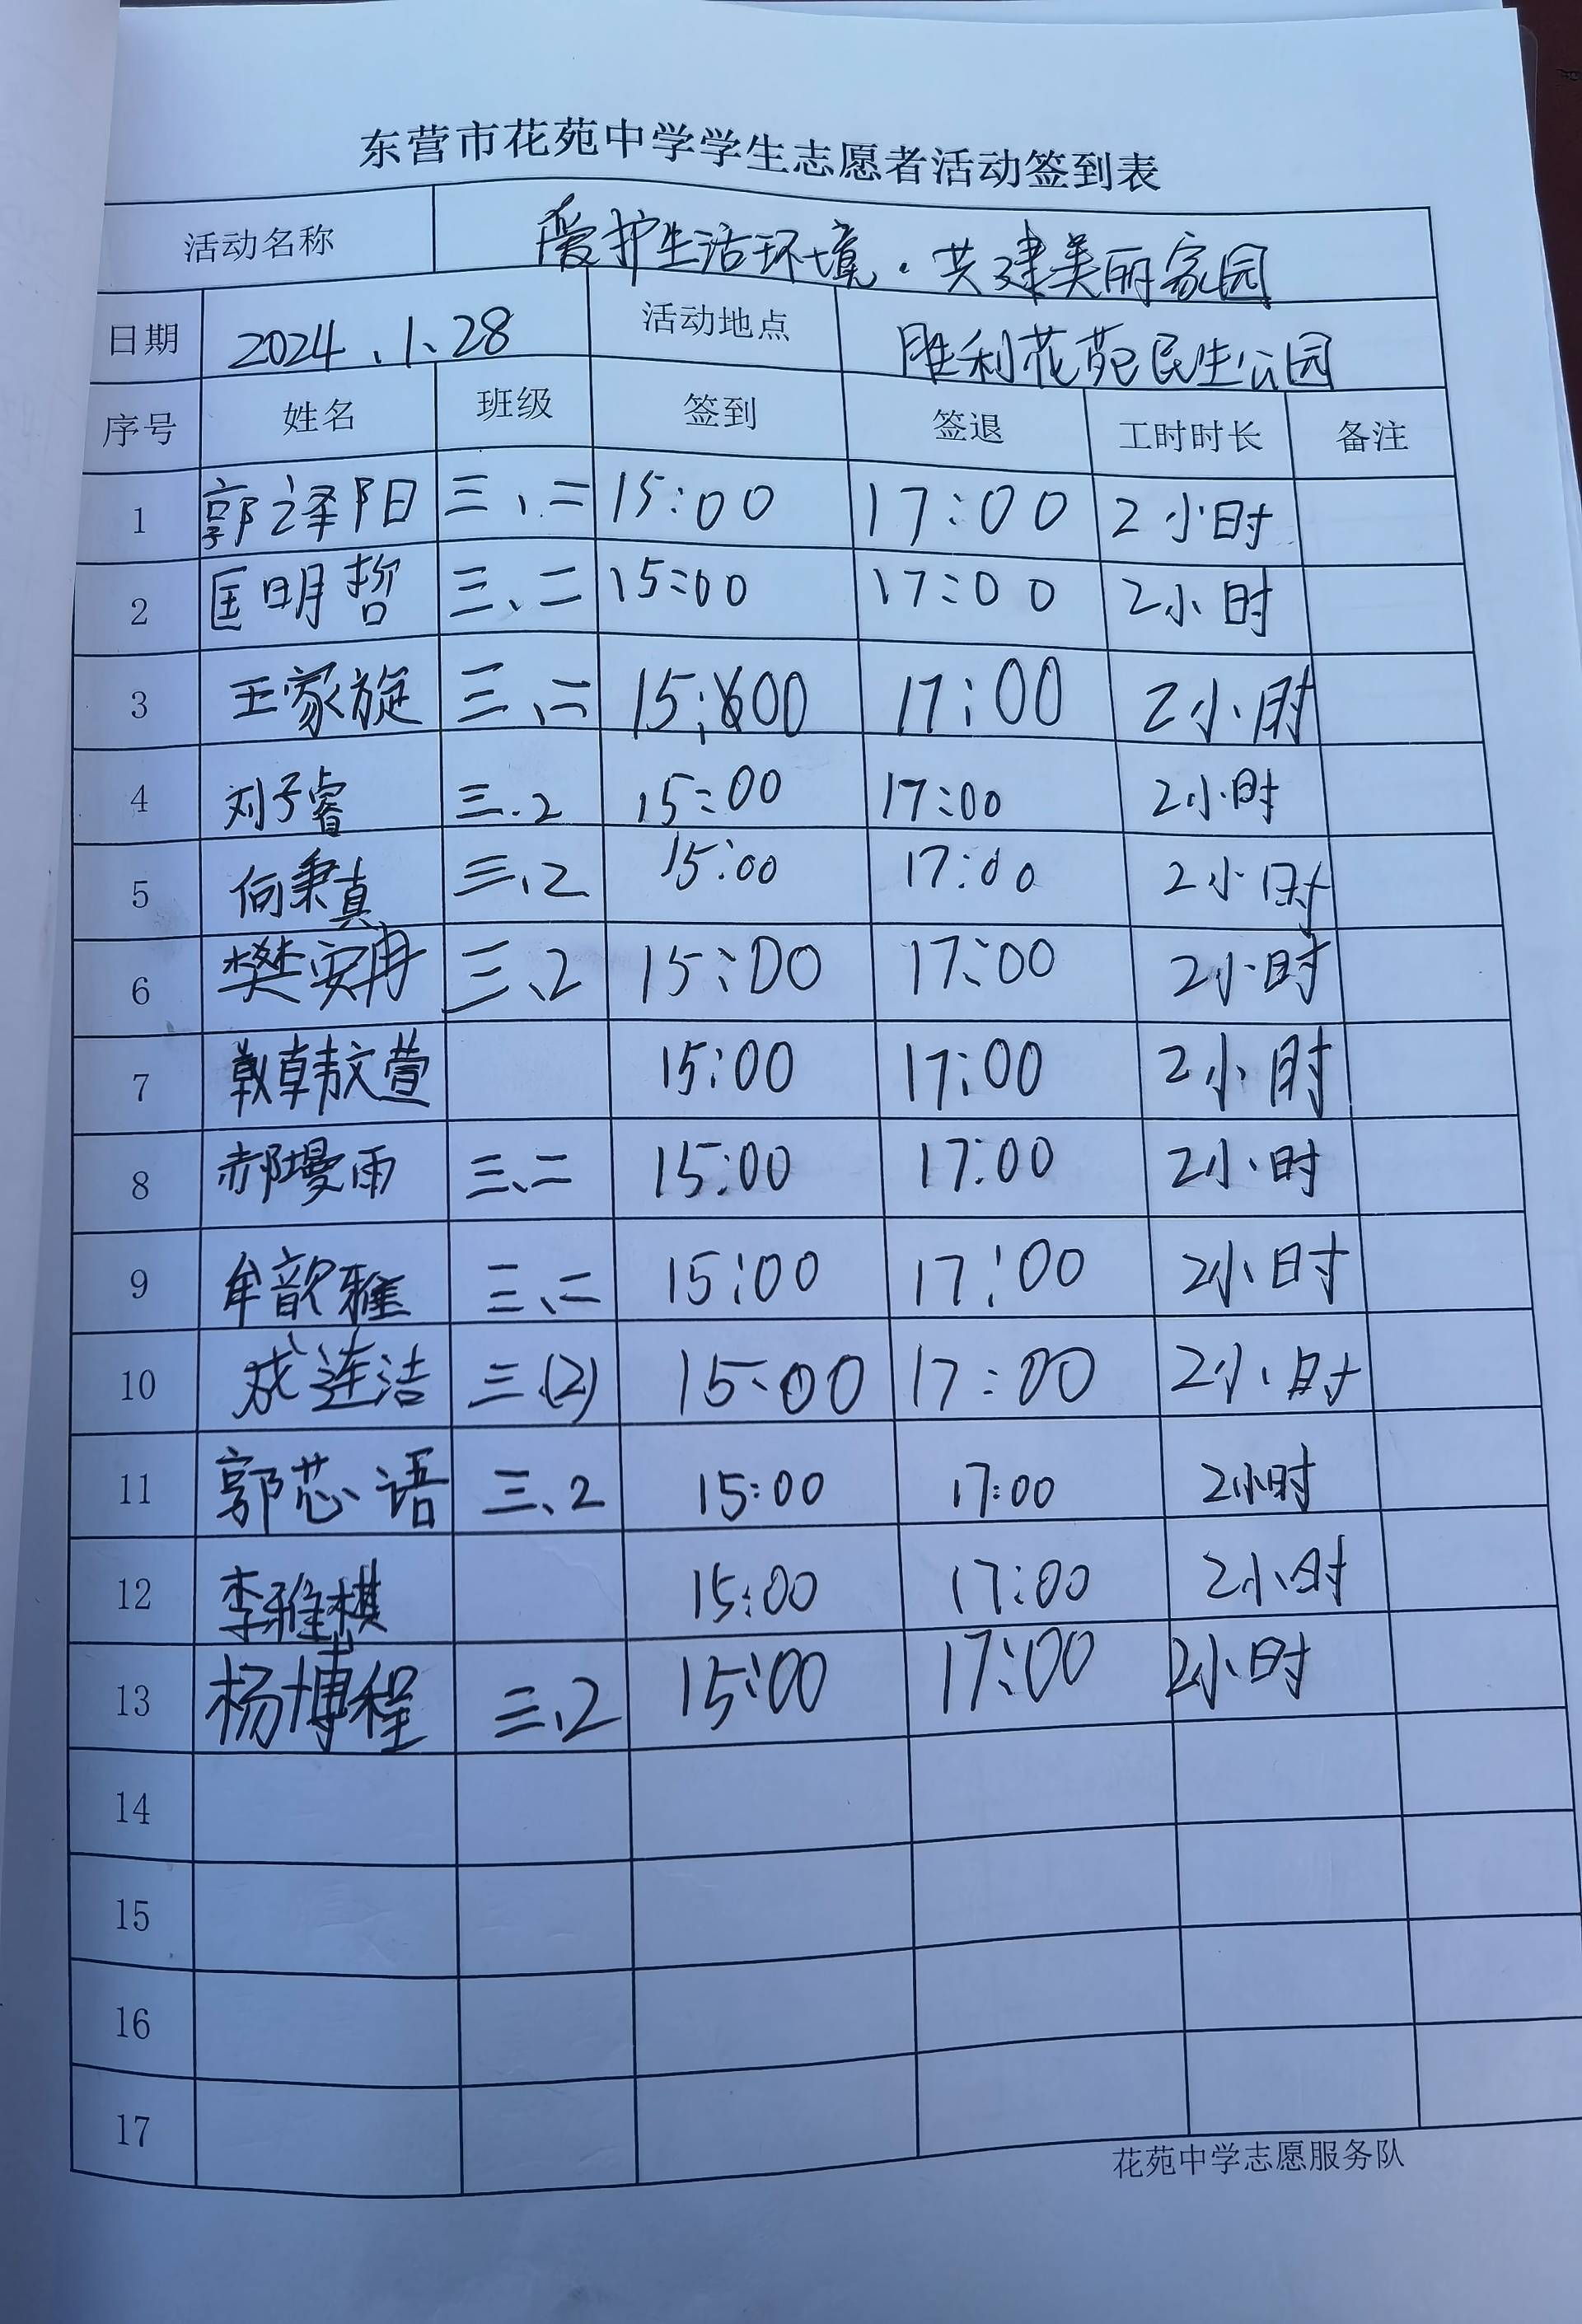 东营市花苑中学学生志愿者活动签到表
活动名称 爱护生活环境.共建美丽家园
日期 2024.1.28 活动地点 胜利花苑民生公园
序号 姓名 班级 签到 签退 工时时长 备注
1 郭译阳 三、二 15:00 17:00 2小时
2 匡明哲 三、二 15:00 17:00 2小时
3 王家旋 三、二 15:00 17:00 2小时
4 刘子睿 三.2 15:00 17:00 2小时
5 向秉真 三、2 15:00 17:00 2小时
6 樊安冉 三、2 15:00 17:00 2小时
7 韩文萱 15:00 17:00 2小时
8 郝墁雨 三、二 15:00 17:00 2小时
9 牟歆雅 三、二 15:00 17:00 2小时
10 成连洁 三.(2) 15:00 17:00 2小时
11 郭芯语 三、2 15:00 17:00 2小时
12 李雅棋 15:00 17:00 2小时
13 杨博程 三、2 15:00 17:00 2小时
14
15
16
17
花苑中学志愿服务队